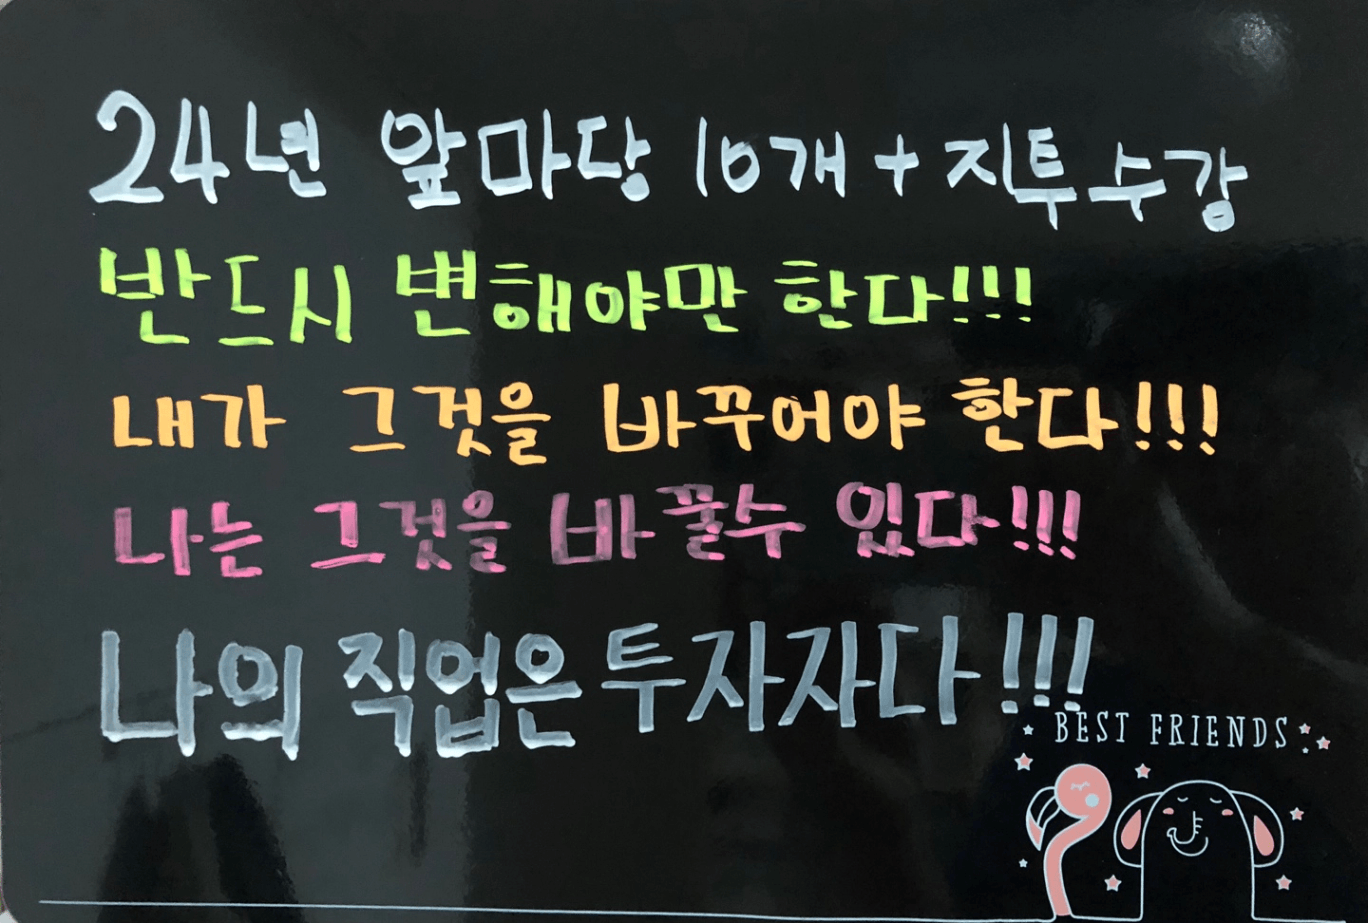 24년 앞마당 10개 + 지투 수강
반드시 변해야만 한다!!!
내가 그것을 바꾸어야 한다!!!
나는 그것을 바꿀수 있다!!!
나의 직업은 투자자다!!!
BEST FRIENDS